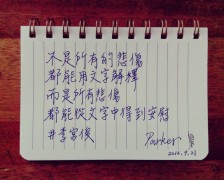 不是所有的悲傷
都能用文字解釋
而是所有悲傷
都能從文字中得到安慰
#李宰俊
Parker
2016.9.21